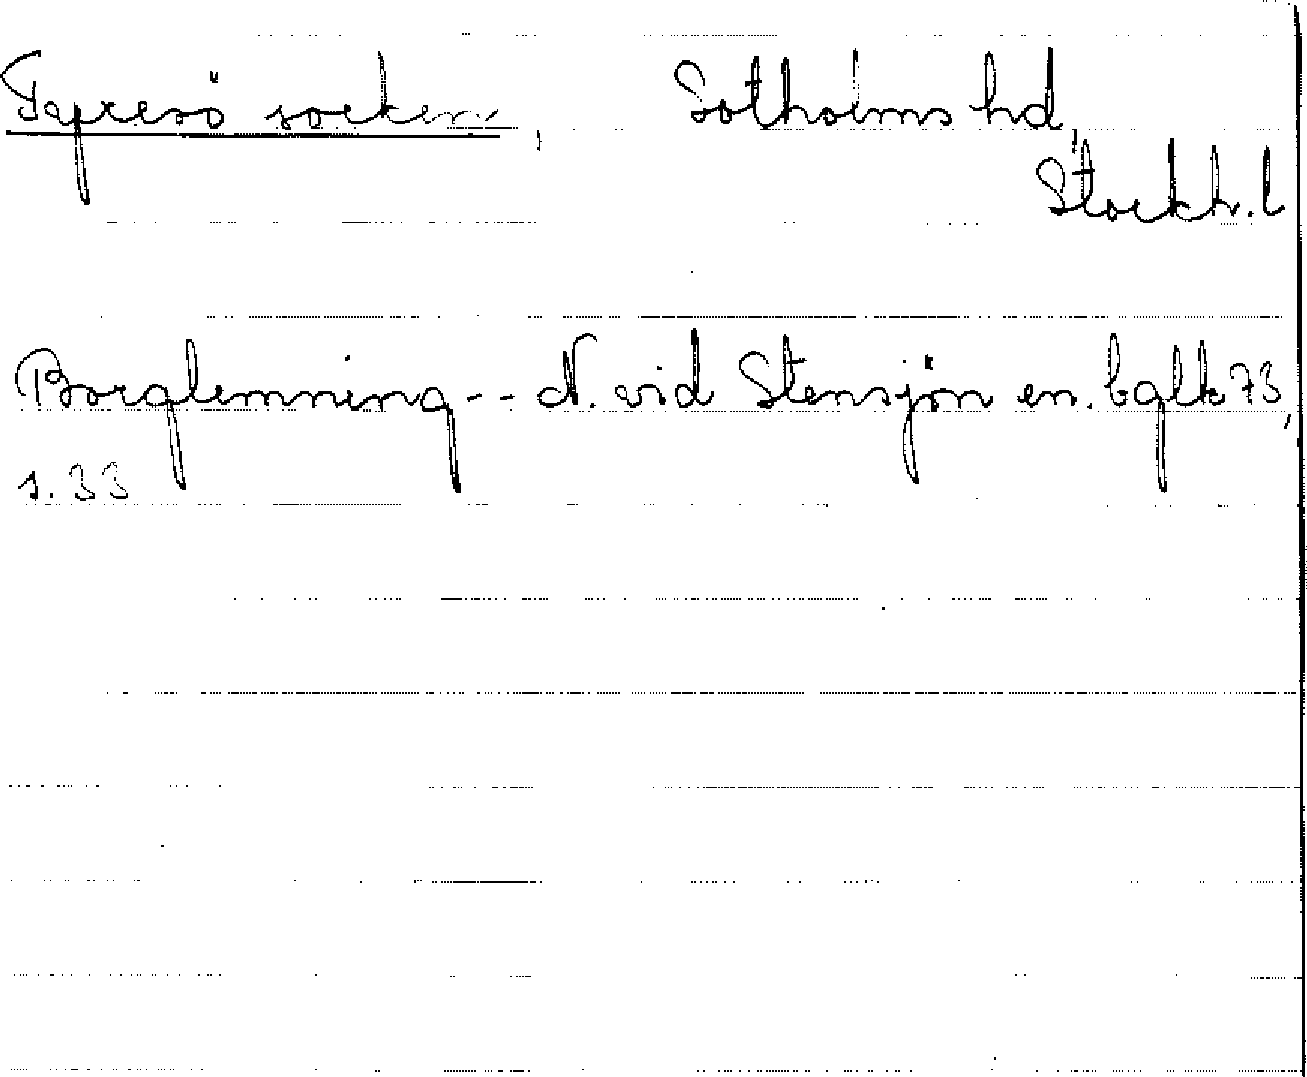 Tyresö socken, Sotholms hd,
Stockh. l
Borglemning -- N. vid Stensjön en. bglk 73,
s. 33